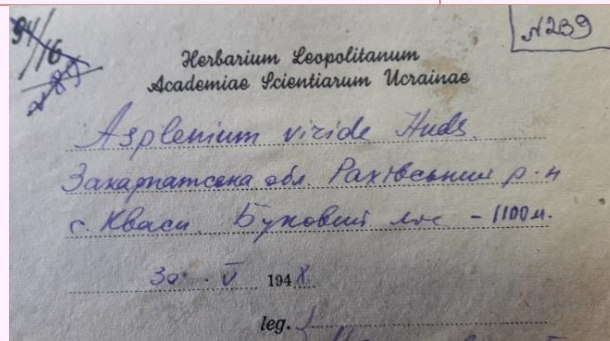 94/16
№239
Herbarium Leopolitanum
Academiae Scientiarum Ucrainae
Asplenium viride Huds.
Закарпатська обл. Рахівський р-н
с. Кваси. Буковий ліс - 1100 м.
30 · V 1948
leg.